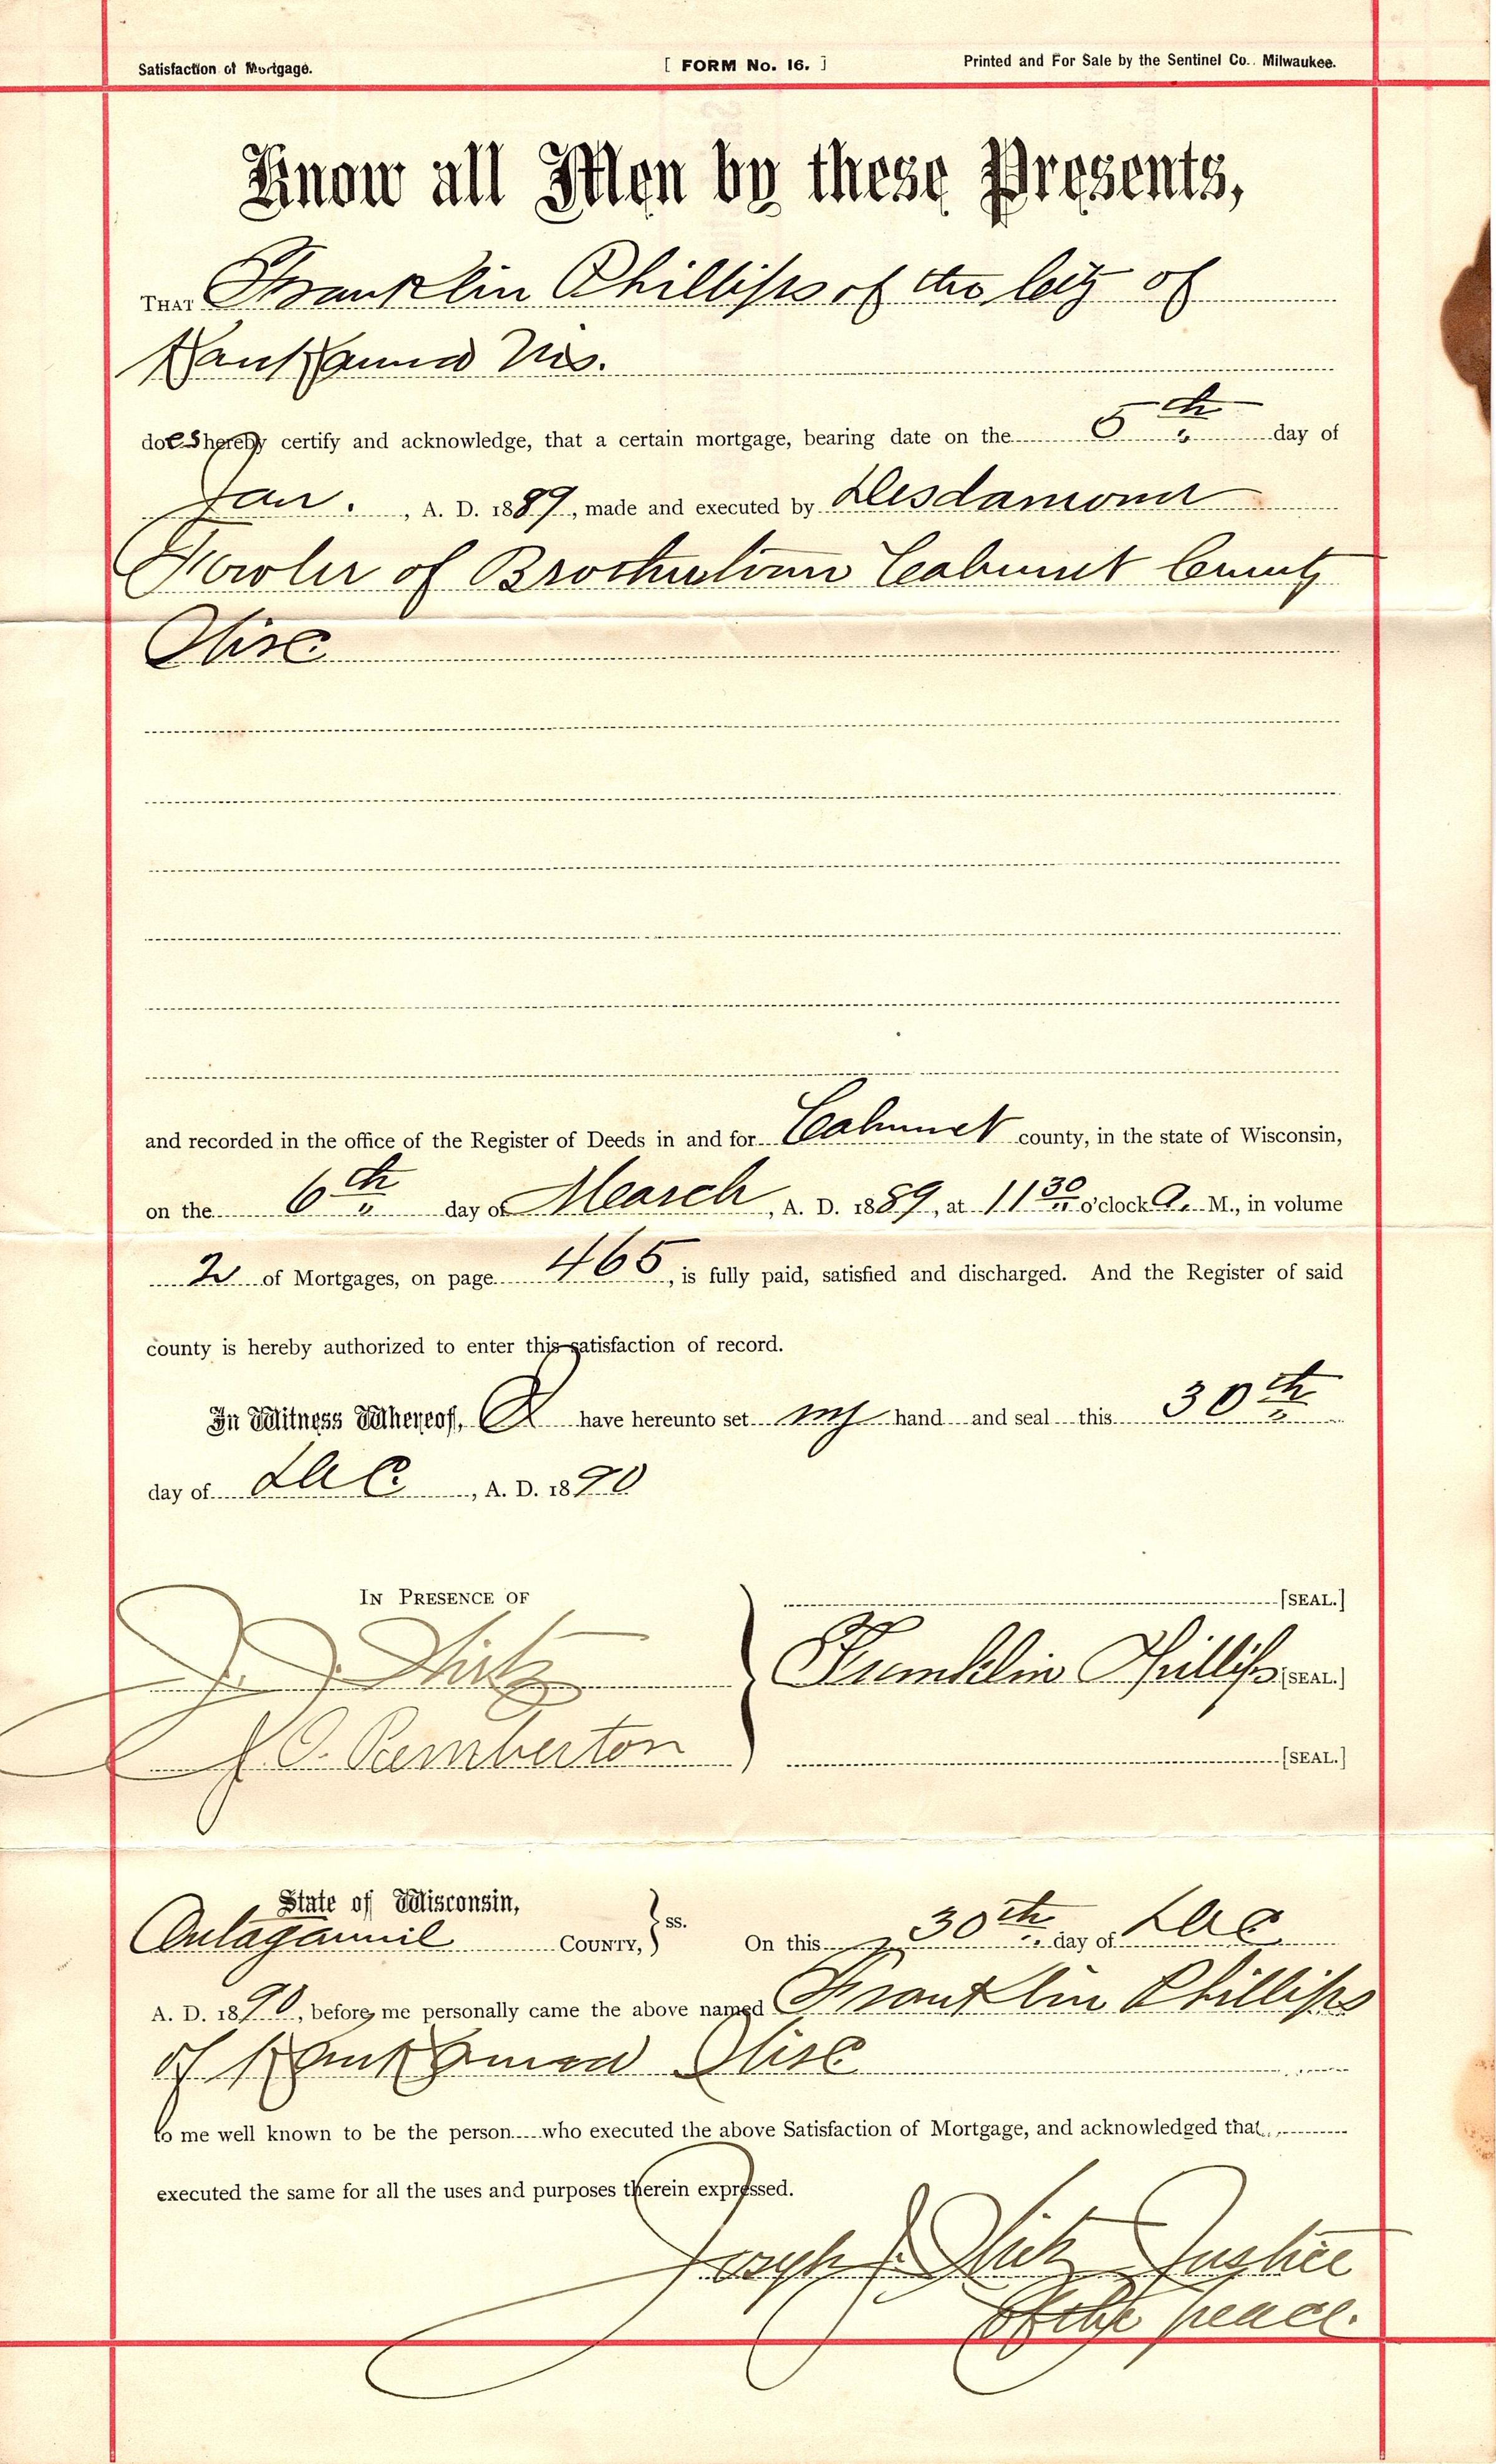 Satisfaction of Mortgage. [ FORM No. 16. ] Printed and For Sale by the Sentinel Co., Milwaukee.
Know all Men by these Presents,
THAT Franklin Phillips of the City of
Kaukauna Wis.
does hereby certify and acknowledge, that a certain mortgage, bearing date on the 5th day of
Jan. , A. D. 1889, made and executed by Desdamona
Fowler of Brothertown Calumet County
Wisc
and recorded in the office of the Register of Deeds in and for Calumet county, in the state of Wisconsin,
on the 6th day of March, A. D. 1889, at 11 30 o'clock A. M., in volume
2 of Mortgages, on page 465, is fully paid, satisfied and discharged. And the Register of said
county is hereby authorized to enter this satisfaction of record.
In Witness Whereof, I have hereunto set my hand and seal this 30th
day of Dec , A. D. 1890
IN PRESENCE OF [SEAL.]
J. J. Franklin Phillips [SEAL.]
J. O. Pemberton [SEAL.]
State of Wisconsin,
Outagamie COUNTY, } ss. On this 30th day of Dec
A. D. 1890, before me personally came the above named Franklin Phillips
of Kaukauna Wisc
to me well known to be the person who executed the above Satisfaction of Mortgage, and acknowledged that
executed the same for all the uses and purposes therein expressed.
Joseph J. Justice
of the peace.